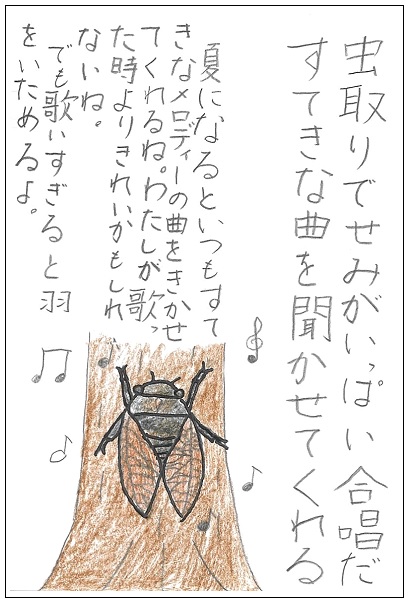 虫取りでせみがいっぱい合唱だ
すてきな曲を聞かせてくれる
夏になるといつもすて
きなメロディーの曲をきかせ
てくれるね。わたしが歌っ
た時よりきれいかもしれ
ないね。
でも歌いすぎると羽
をいためるよ。